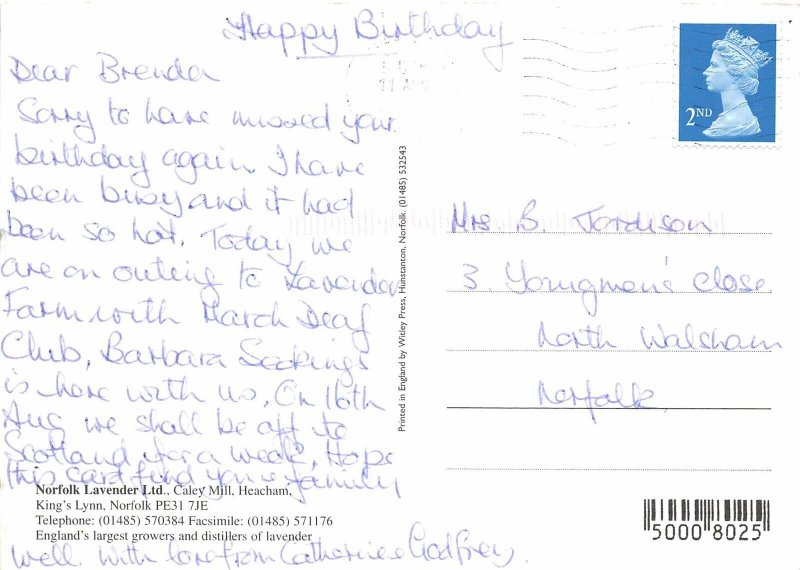 Happy Birthday
Dear Brenda
Sorry to have missed your
birthday again. I have
been busy and it had
been so hot. Today we
are on outing to Lavender
Farm with March Deaf
Club, Barbara Seekings
is here with us, On 16th
Aug we shall be off to
Scotland for a week, Hope
this card find you & family
well. With love from Catherine & Godfrey.
2ND
11 AUG
Mrs. B. Jordison
3 Youngmen's Close
North Walsham
Norfolk.
Printed in England by Witley Press, Hunstanton, Norfolk. (01485) 532543
Norfolk Lavender Ltd., Caley Mill, Heacham,
King's Lynn, Norfolk PE31 7JE
Telephone: (01485) 570384 Facsimile: (01485) 571176
England's largest growers and distillers of lavender
5000 8025